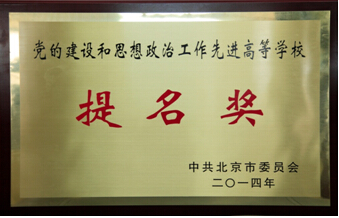 党的建设和思想政治工作先进高等学校
提名奖
中共北京市委员会
二〇一四年